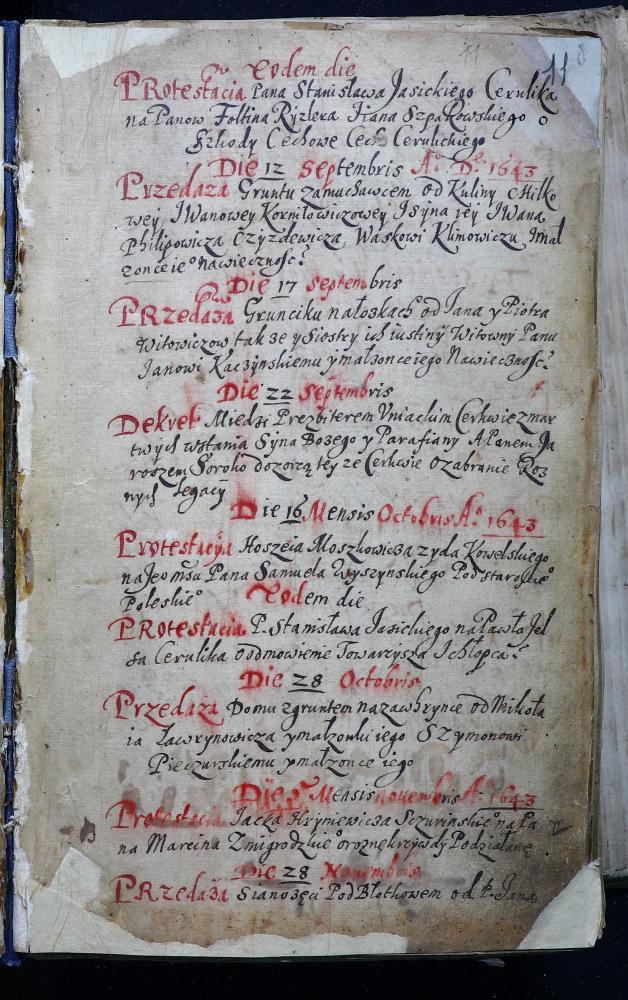 11
Eodem die
PRotestacia Pana Stanisława Jasickiego Cerulika
na Panow Foltina Ryzlera Jiana Szpakowskiego o
Szkody Cechowe Cech Cerulickiego
Die 12 Septembris A° D° 1643
Przedaza Gruntu zamuchawcem od Kuliny Chilko
wey IWanowey Kormłowiczowey Isyna iey IWana
Philipowicza Czyzdewicza Waskowi Klimowiczu Imał
zonceie° nawiecznosc
Die 17 Septembris
PRzedaza Grunciku nałozkach od Jana y Piotra
Witowiczow takze y Siostry ich iustiny Witowny Panu
Janowi Kaczynskiemu ymałzonceiego Nawiecznosc
Die 22 Septembris
Dekret Miedzi Prezbiterem Vniackim Cerkwie zmar
twych wstania Syna Bozego y Parafiany A Panem Ja
roszem Soroko dozorcą tey ze Cerkwie o zabranie Roz
nych legacy
Die 16 Mensis Octobris A° 1643
Protestacya Hoszeia Moszkowicza zyda Kowelskiego
na Jeo msu Pana Samuela Wyszynskiego Podstaroscie°
Poleskie°
Eodem die
PRotestacia P. Stanisława Jasickiego na Pawła Jel
sa Cerulika o odmowienie Towarzysza Ichłopca
Die 28 Octobris
Przedaza Domu zgruntem nazawhrynce od Mikoła
ia Ławrynowicza ymałzonki iego Szymonowi
Pieczurskiemu ymałzonce iego
Die Mensis novembris A° 1643
Protestacia Jacka Hryniewicza Sczurinskie° na Pa
na Marcina Zmigrodzkie° oroznekrzywdy Podziałane
Die 28 Novembris
PRzedaza Sianozęci Pod Błotkowem od P. Jana